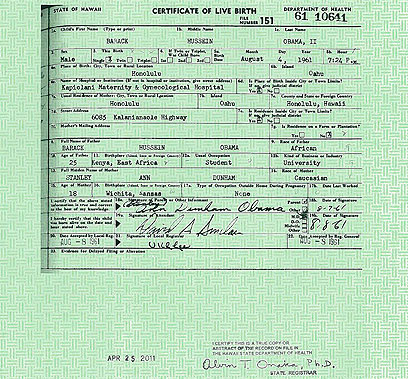 STATE OF HAWAII CERTIFICATE OF LIVE BIRTH DEPARTMENT OF HEALTH
FILE NUMBER 151 61 10641
1a. Child's First Name (Type or print) 1b. Middle Name 1c. Last Name
BARACK HUSSEIN OBAMA, II
2. Sex 3. This Birth 4. If Twin or Triplet, Was Child Born 5a. Birth Date Month Day Year 5b. Hour
Male Single Twin Triplet 1st 2nd 3rd August 4, 1961 7:24 P.M.
6a. Place of Birth: City, Town or Rural Location 6b. Island
Honolulu Oahu
6c. Name of Hospital or Institution (If not in hospital or institution, give street address) 6d. Is Place of Birth Inside City or Town Limits? If no, give judicial district
Kapiolani Maternity & Gynecological Hospital Yes No
7a. Usual Residence of Mother: City, Town or Rural Location 7b. Island 7c. County and State or Foreign Country
Honolulu Oahu Honolulu, Hawaii
7d. Street Address 7e. Is Residence Inside City or Town Limits? If no, give judicial district
6085 Kalanianaole Highway Yes No
7f. Mother's Mailing Address 7g. Is Residence on a Farm or Plantation?
Yes No
8. Full Name of Father 9. Race of Father
BARACK HUSSEIN OBAMA African
10. Age of Father 11. Birthplace (Island, State or Foreign Country) 12a. Usual Occupation 12b. Kind of Business or Industry
25 Kenya, East Africa Student University
13. Full Maiden Name of Mother 14. Race of Mother
STANLEY ANN DUNHAM Caucasian
15. Age of Mother 16. Birthplace (Island, State or Foreign Country) 17a. Type of Occupation Outside Home During Pregnancy 17b. Date Last Worked
18 Wichita, Kansas None
I certify that the above stated information is true and correct to the best of my knowledge. 18a. Signature of Parent or Other Informant Parent Other 18b. Date of Signature
Ann Dunham Obama 8-7-61
I hereby certify that this child was born alive on the date and hour stated above. 19a. Signature of Attendant M.D. D.O. Midwife Other 19b. Date of Signature
David A Sinclair 8-8-61
20. Date Accepted by Local Reg. 21. Signature of Local Registrar 22. Date Accepted by Reg. General
AUG -8 1961 U K Lee AUG -8 1961
23. Evidence for Delayed Filing or Alteration
APR 25 2011
I CERTIFY THIS IS A TRUE COPY OR
ABSTRACT OF THE RECORD ON FILE IN
THE HAWAII STATE DEPARTMENT OF HEALTH
Alvin T. Onaka, Ph.D.
STATE REGISTRAR